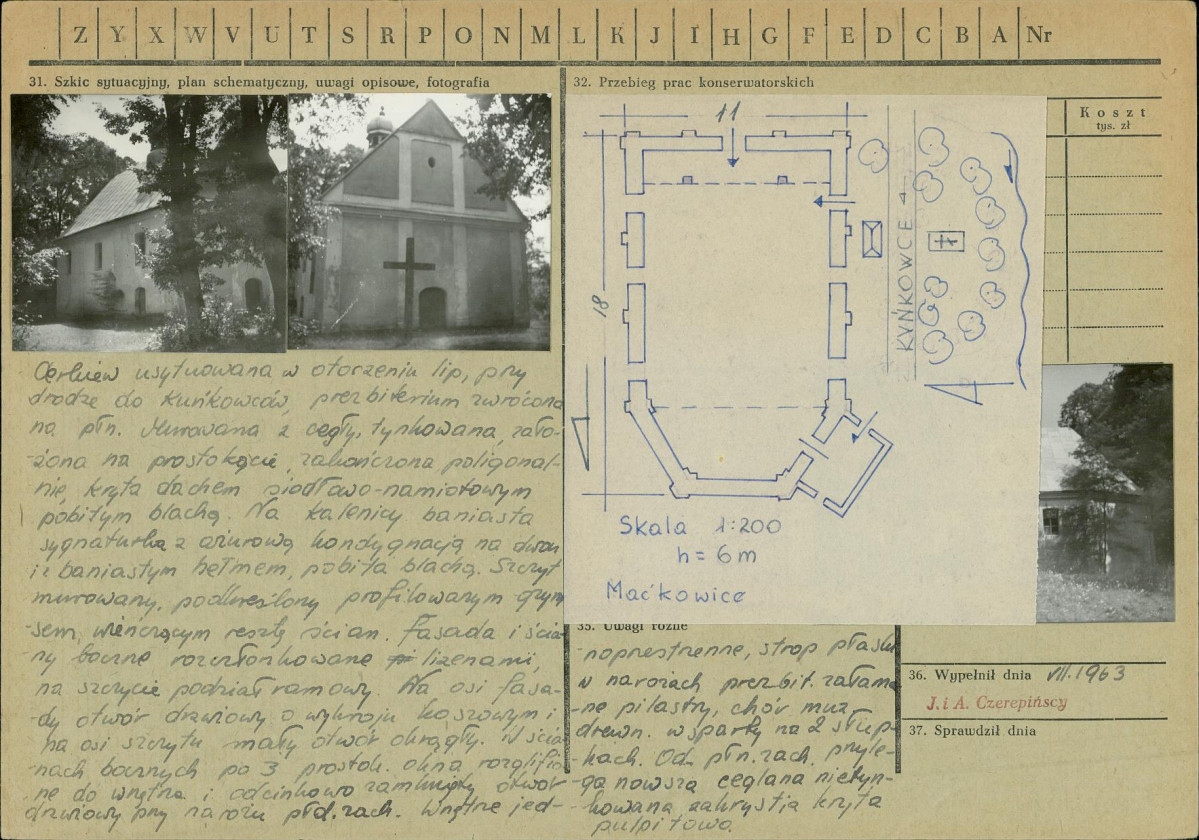 Z Y X W V U T S R P O N M L K J I H G F E D C B A Nr
31. Szkic sytuacyjny, plan schematyczny, uwagi opisowe, fotografia
Cerkiew usytuowana w otoczeniu lip, przy
drodze do Kuńkowców, prezbiterium zwrócona
na płn. Murowana z cegły, tynkowana, zało-
-żona na prostokącie, zakończona poligonal-
nie, kryta dachem siodłowo-namiotowym
pobitym blachą. Na kalenicy baniasta
sygnaturka z ażurową kondygnacją na dzwon
i z baniastym hełmem, pobita blachą. Szczyt
murowany, podkreślony profilowanym gzym
-sem, wieńczącym resztę ścian. Fasada i ścia-
ny boczne rozczłonkowane lizenami,
na szczycie podział ramowy. Na osi fasa-
dy otwór drzwiowy o wykroju koszowym i
na osi szczytu mały otwór okrągły. W ścia
-nach bocznych po 3 prostok. okna rozglifio
-ne do wnętrza i odcinkowo zamknięty otwór
drzwiowy przy narożu płd.zach. Wnętrze jed-
32. Przebieg prac konserwatorskich
Koszt
tys. zł
11
18
KUŃKOWCE
Skala 1:200
h = 6 m
Maćkowice
35. Uwagi różne
-noprzestrzenne, strop płaski
w narożach prezbit. załama
-ne pilastry, chór muz.
drewn. wsparty na 2 słup-
-kach. Od płn.zach. przyle-
-ga nowsza ceglana nietyn-
-kowana zakrystia kryta
pulpitowo.
36. Wypełnił dnia VII.1963
J. i A. Czerepińscy
37. Sprawdził dnia